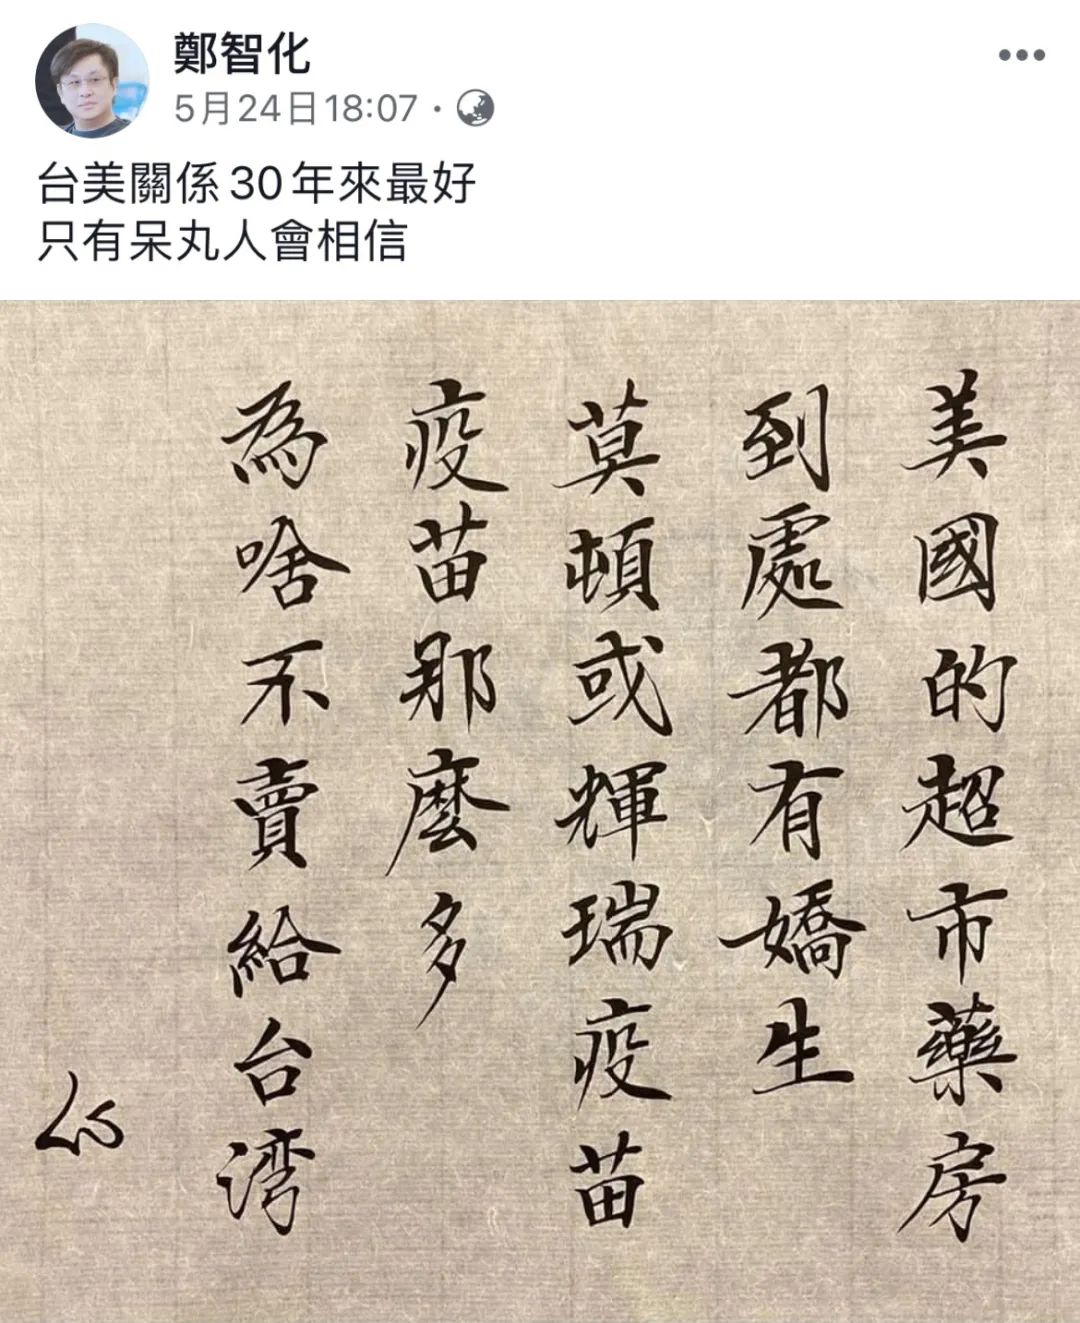 鄭智化
5月24日18:07
台美關係30年來最好
只有呆丸人會相信
美國的超市藥房
到處都有嬌生
莫頓或輝瑞疫苗
疫苗那麼多
為啥不賣給台湾